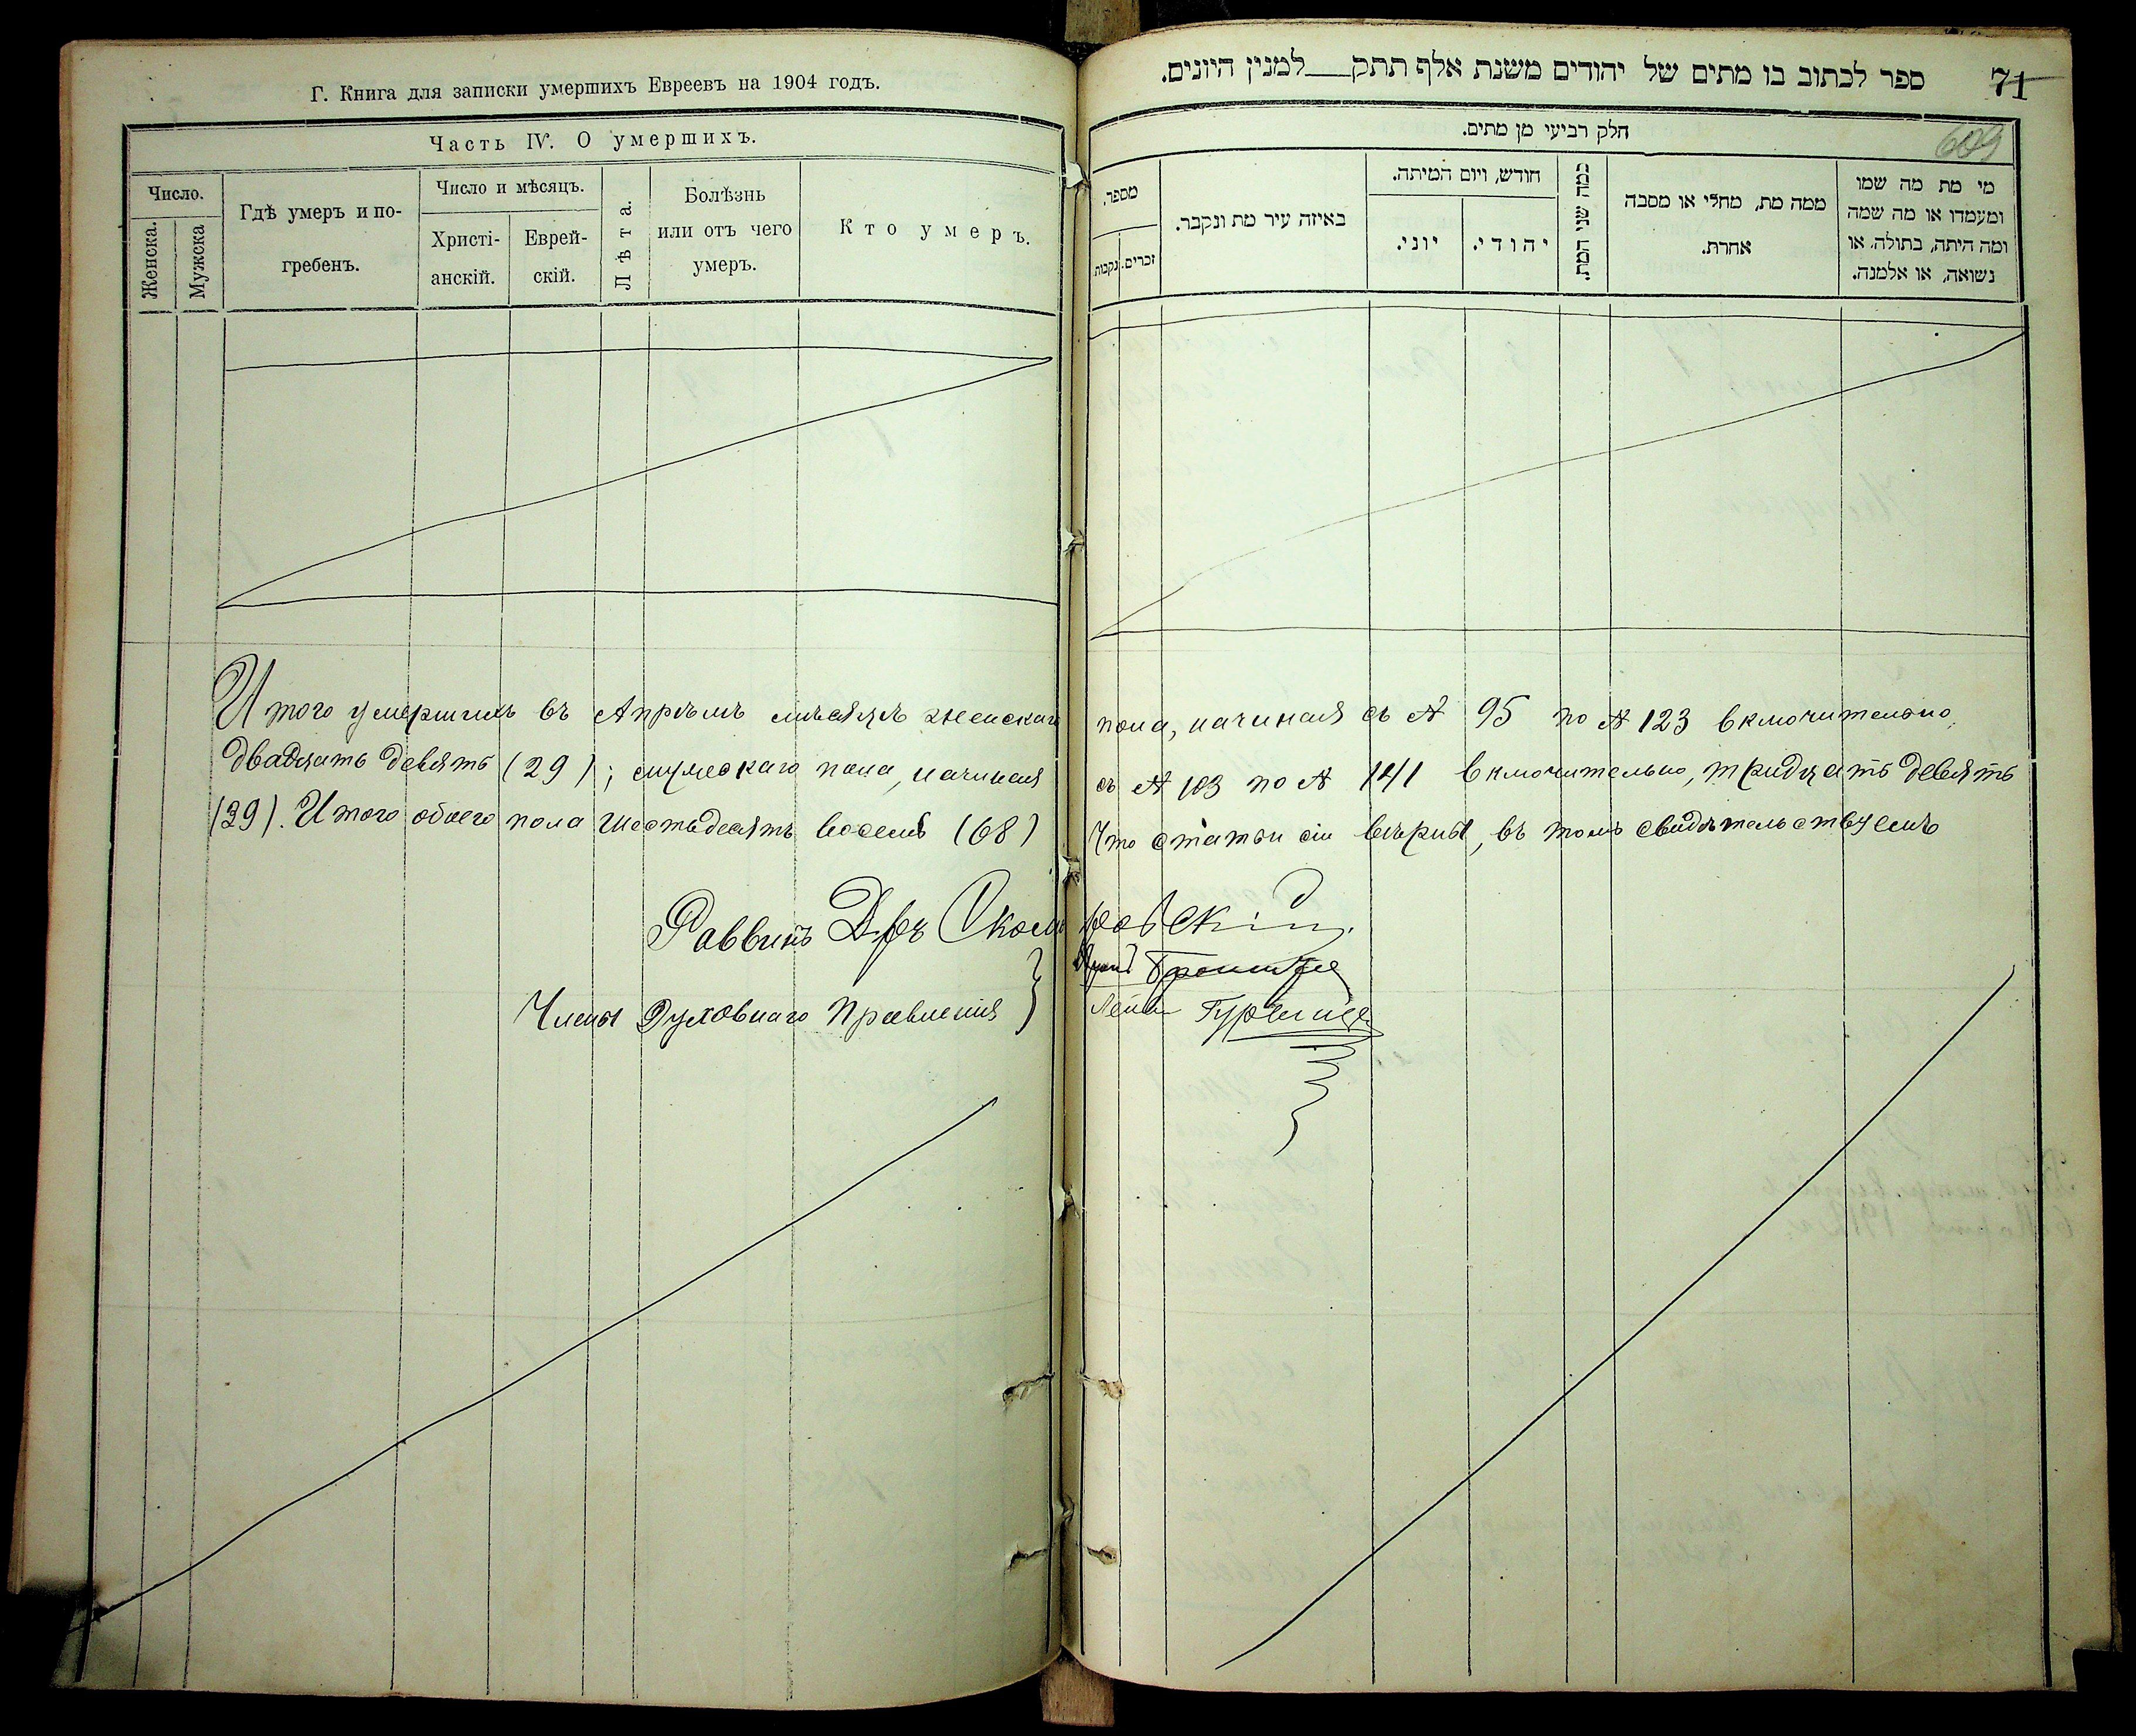 Г. Книга для записки умершихъ Евреевъ на 1904 годъ.
Часть IV. О умершихъ.
Число.
Женска.
Мужска
Гдѣ умеръ и по-
гребенъ.
Число и мѣсяцъ.
Христі-
анскій.
Еврей-
скій.
Лѣта.
Болѣзнь
или отъ чего
умеръ.
Кто умеръ.
ספר לכתוב בו מתים של יהודים משנת אלף תתק למנין היונים.
71
609
חלק רביעי מן מתים.
מספר.
נקבות.
זכרים.
באיזה עיר מת ונקבר.
חודש, ויום המיתה.
יוני.
יהודי.
כמה שני המת.
ממה מת, מחלי או מסבה
אחרת.
מי מת מה שמו
ומעמדו או מה שמה
ומה היתה, בתולה, או
נשואה, או אלמנה.
Итого умершихъ въ Апрѣлѣ мѣсяцѣ женскаго пола, начиная съ № 95 по № 123 включительно,
двадцать девять (29); мужескаго пола, начиная съ № 103 по № 141 включительно, тридцать девять
(39). Итого обоего пола шестьдесятъ восемь (68) Что статьи сіи вѣрны, въ томъ свидѣтельствуемъ
Раввинъ Д-ръ Скоморовскій
Члены Духовнаго Правленія }
Гуревичъ